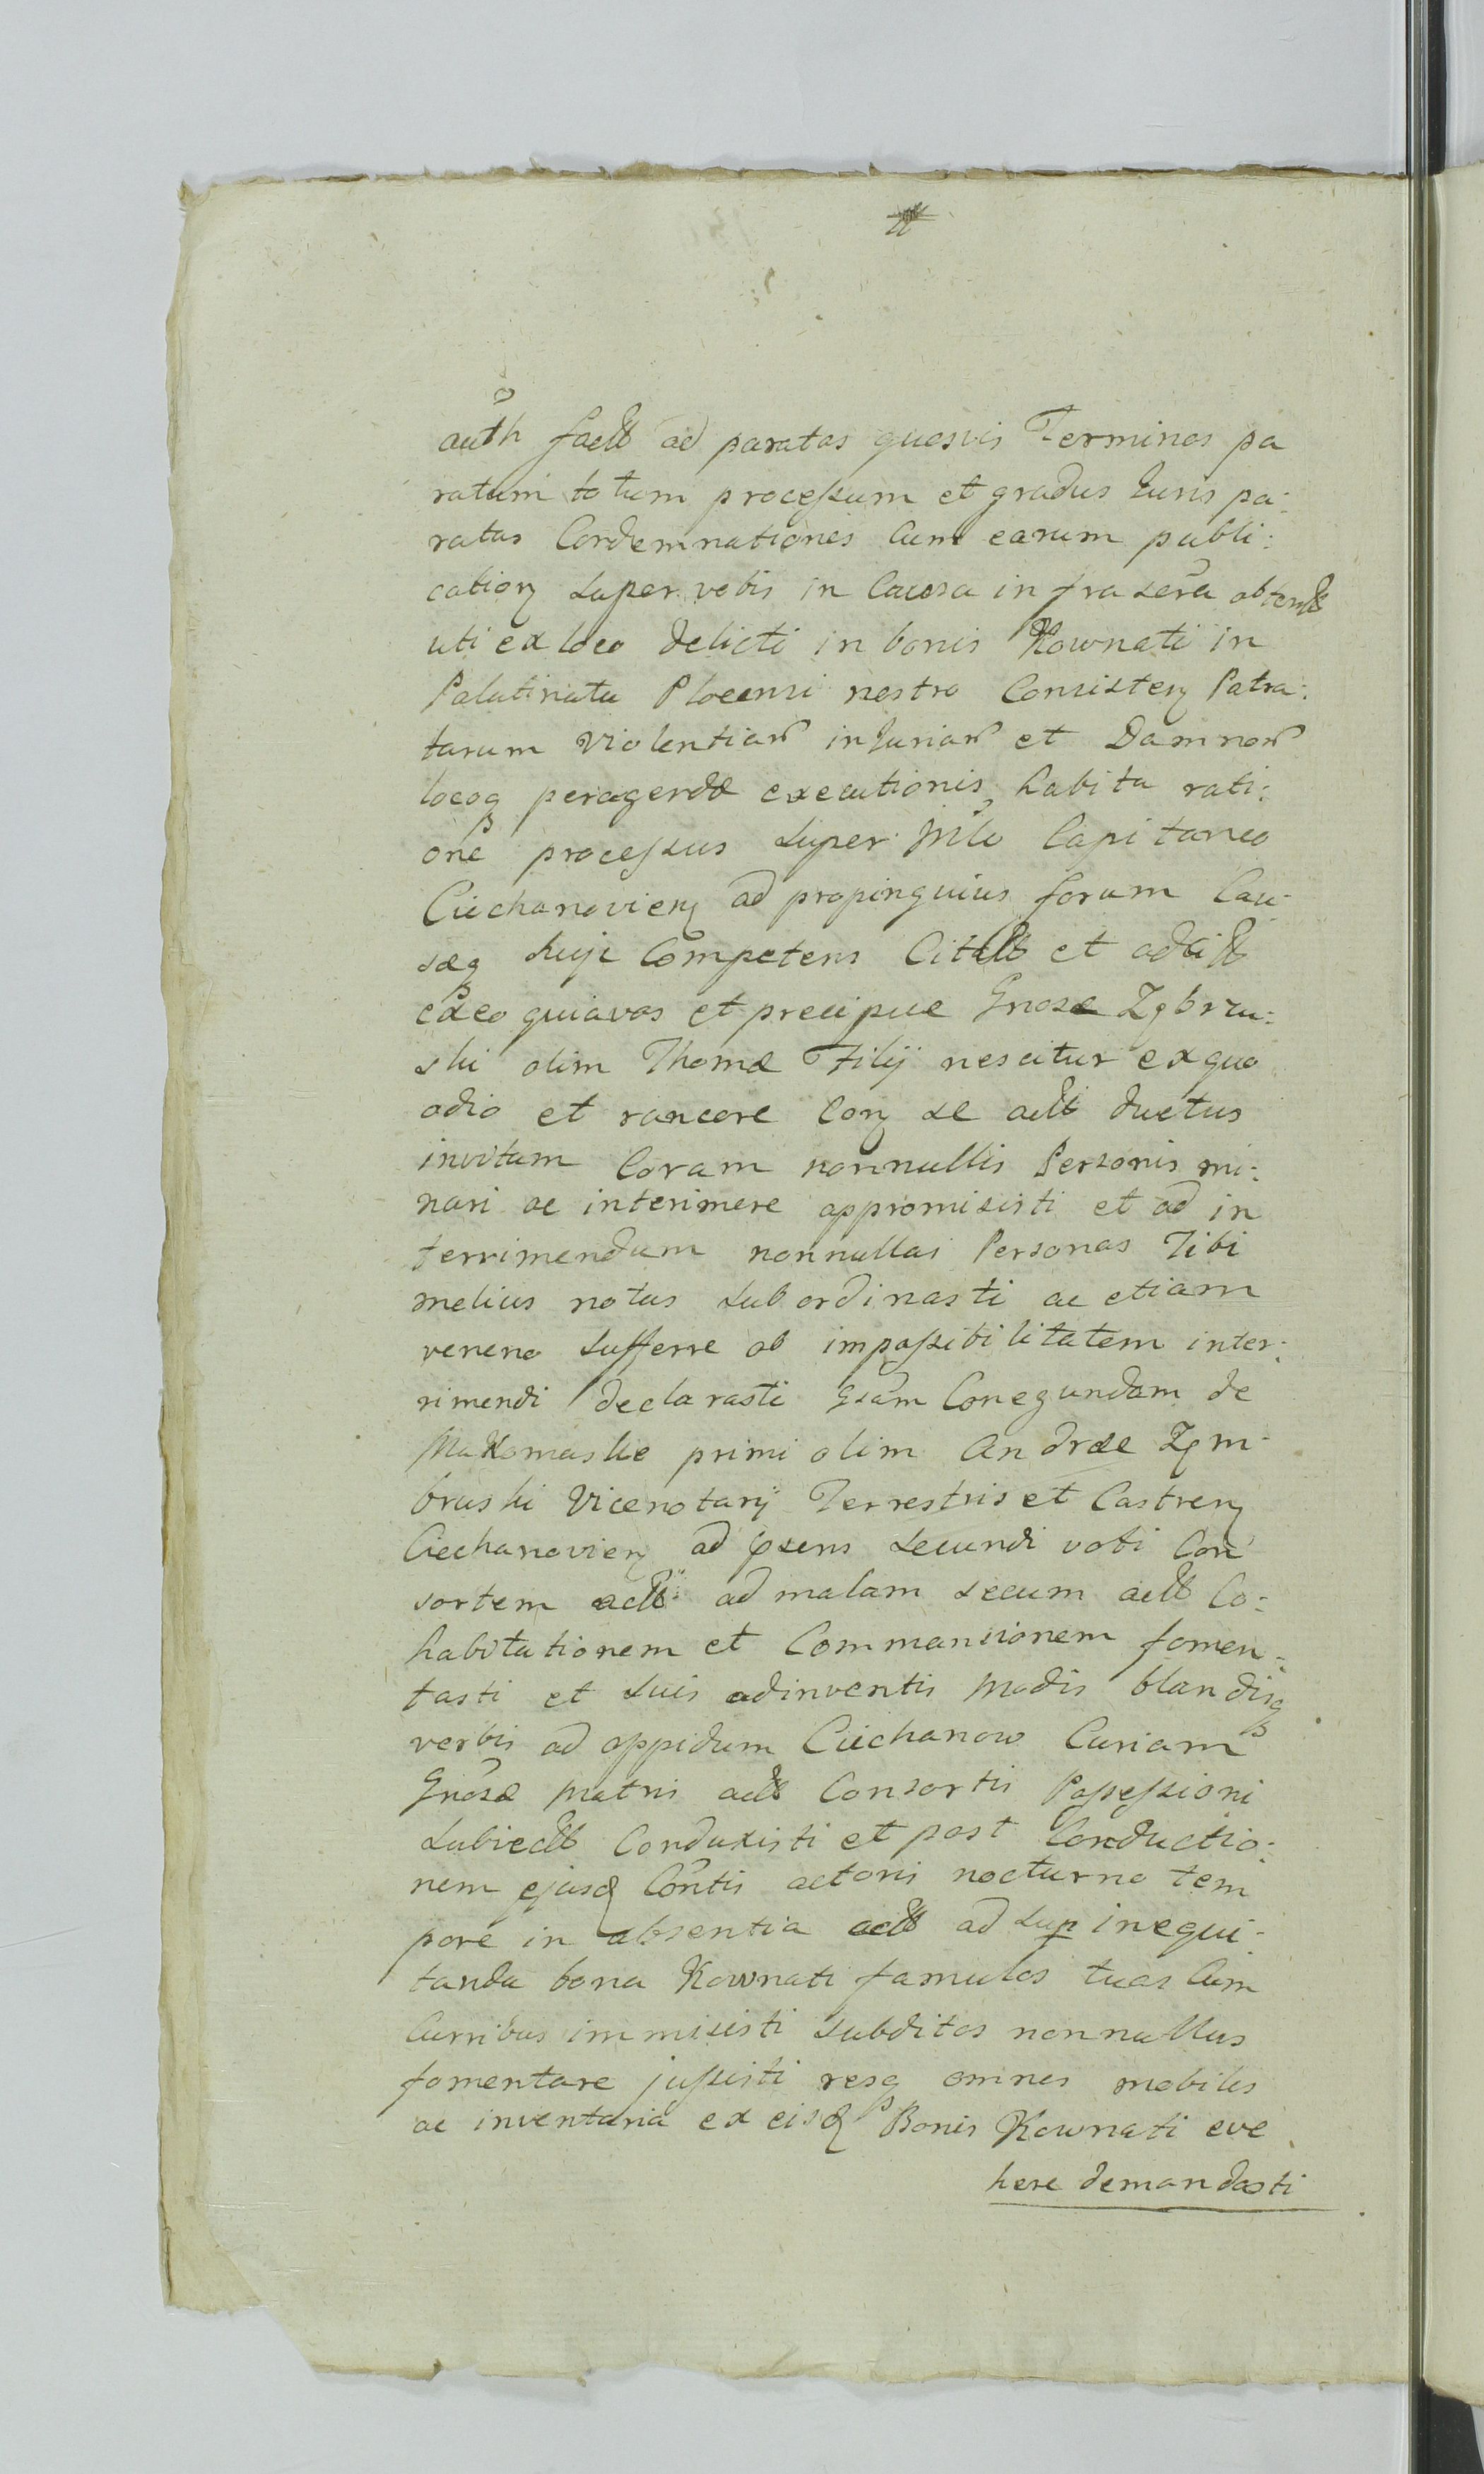 auth factt ad paratas quosvis Terminos pa
ratum totum processum et gradus Iuris pa:
ratas Condemnationes Cum earum publi:
cation super vobis in Causa infrascra obtentt
uti ex loco delicti in bonis Kownati in
Palatinatu Plocensi nostro Consisten Patra:
tarum violentiar injuriar et Damnor
locoq peragendæ executionis habita rati:
one processus super Capitaneo
Ciechanovien ad propinquius forum Cau-
sæq huje Competens Citatt et
ex eo quia vos et precipue Gnose Zębrzu:
ski olim Thomæ Filij nescitur ex quo
odio et rancore Con se actt ductus
invitam Coram nonnullis Personis mi:
nari ac interimere appromisisti et ad in
terrimendum nonnullas Personas Tibi
melius notas subordinasti ac etiam
veneno sufferre ob impossibilitatem inter:
rimendi declarasti Gsam Conegundam de
Makomaskie primi olim Andræ Zęm-
bruski Vicenotarij Terrestris et Castren
Ciechanovien ad psens secundi voti Con
sortem actt ad malam secum actt Co:
habitationem et Commansionem fomen:
tasti et suis adinventis modis blandisq
verbis ad oppidum Ciechanow Curiam
Gnosæ matris actt Consortis Possessioni
Subiectt Conduxisti et post Conductio:
nem ejusd Contis actoris nocturno tem
pore in absentia actt ad sup inequi-
tanda bona Kownati famulos tuos Cum
Curribus immisisti subditos nonnullus
fomentare jussisti resq omnes mobiles
ac inventaria ex eisd Bonis Kownati eve
here demandasti